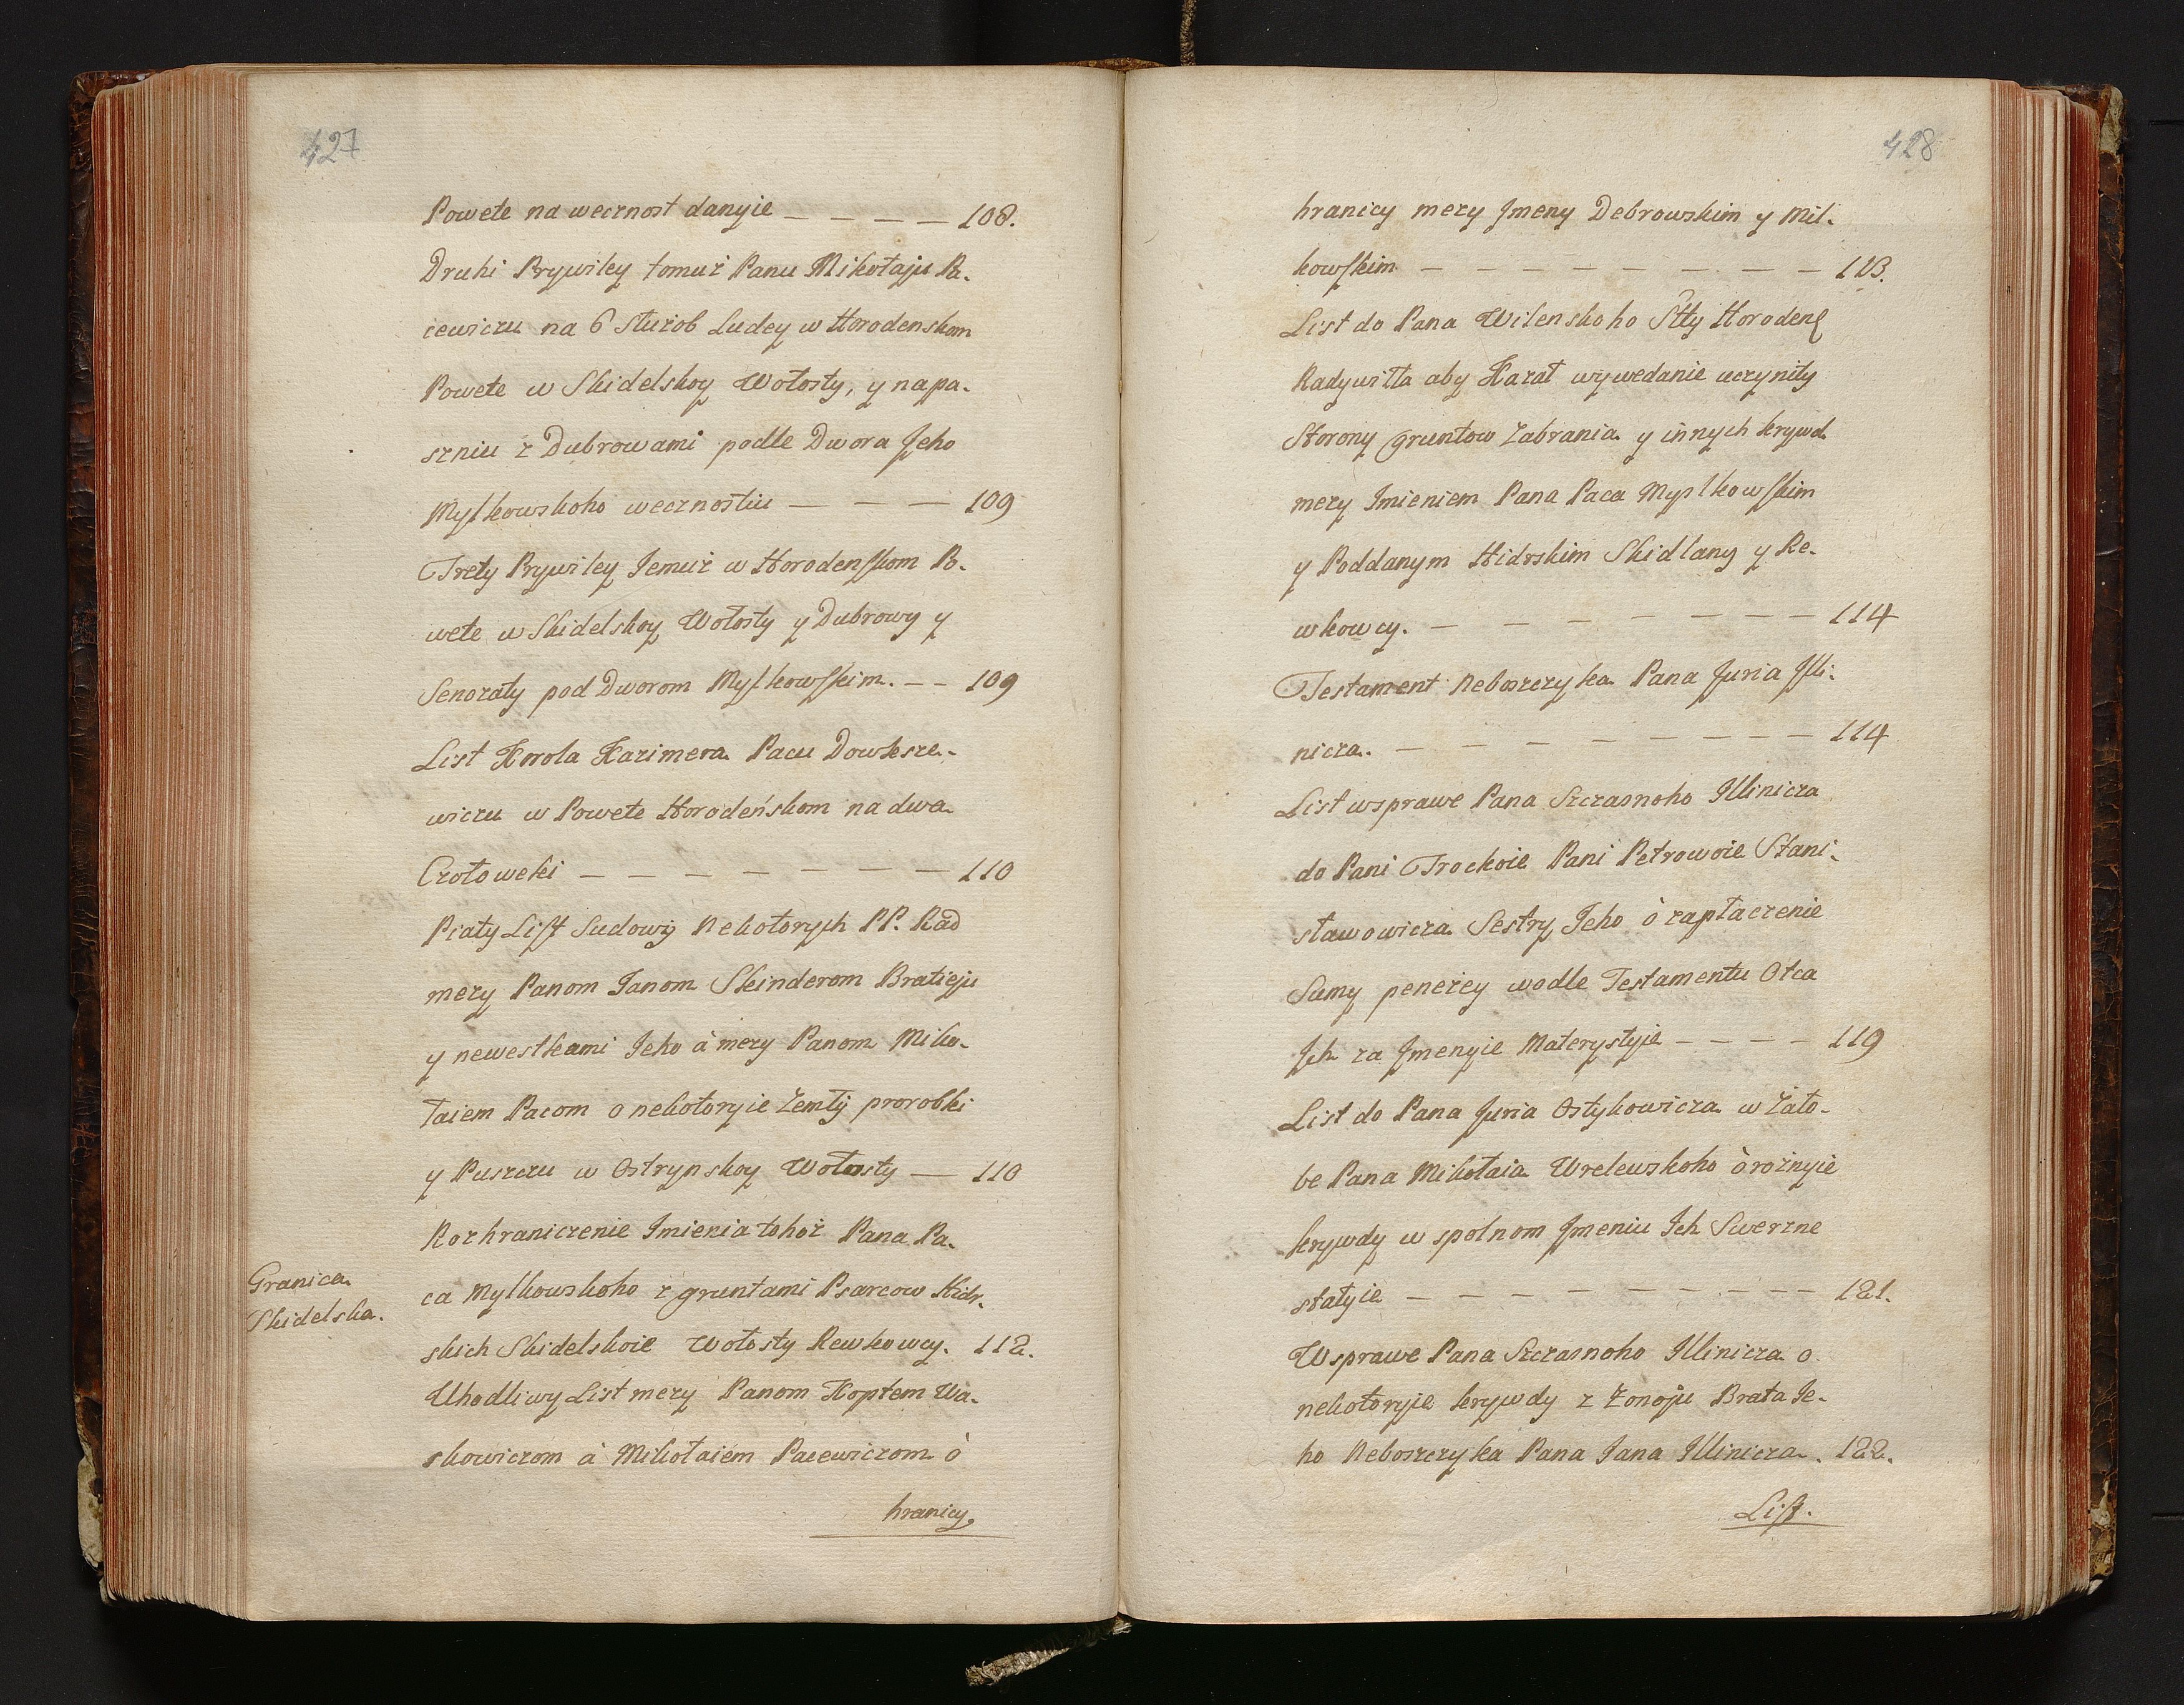 427
Powete na wecznost danyie — — — — 108.
Druhi Prywiley tomuż Panu Mikołaju Pa-
cewiczu na 6 Służob Ludey w Horodenskom
Powete w Skidelskoy Wołosty, y na pa-
szniu z Dubrowami podle Dwora Jeho
Mylkowskoho wecznostiu — — — 109
Trety Prywiley Jemuż w Horodenskom Po-
wete w Skidelskoy Wołosty y Dubrowy y
Senozaty pod Dworom Mylkowskim. — — 109
List Korola Kazimera Pacu Dowksze-
wiczu w Powete Horodeńskom na dwa
Czołoweki — — — — — — — 110
Piaty List Sudowy Nekotorych PP. Rad
mezy Panom Janom Skinderom Bratieju
y newestkami Jeho à mezy Panom Miko-
łaiem Pacom o nekotoryie Zemly prorobki
y Puszczu w Ostrynskoy Wołosty — 110
Rozhraniczenie Imienia tohoż Pana Pa-
Granica
Skidelska.
ca Mylkowskoho z gruntami Psarcow Hidr-
skich Skidelskoie Wołosty Rewkowcy. 112.
Uhodliwy List mezy Panom Koptem Wa-
skowiczom à Mikołaiem Pacewiczom ò
hranicy
428
hranicy mezy Jmeny Debrowskim y Mil-
kowskim — — — — — — — — 113.
List do Pana Wilenskoho Stty Horoden
Radywiłła aby Kazał wywedanie uczynity
Storony gruntow Zabrania y innych krywd
mezy Imieniem Pana Paca Myslkowskim
y Poddanym Hidrskim Skidlany y Re-
wkowcy. — — — — — — — 114
Testament Neboszczyka Pana Juria Illi-
nicza. — — — — — — — — 114
List w sprawe Pana Szczasnoho Illinicza
do Pani Trockoie Pani Petrowoie Stani-
sławowicza Sestry Jeho ò zapłaczenie
Sumy penezey wodle Testamentu Otca
Jch za Jmenyie Materystyie — — — — 119
List do Pana Juria Ostykowicza w Zało-
be Pana Mikołaia Wrelewskoho ò rożnyie
krywdy w spolnom Jmeniu Ich Swerzne
stałyie — — — — — — — — 121.
W sprawe Pana Szczasnoho Illinicza o
nekotoryie krywdy z Żonoju Brata Je-
ho Neboszczyka Pana Jana Illinicza. 122.
List.